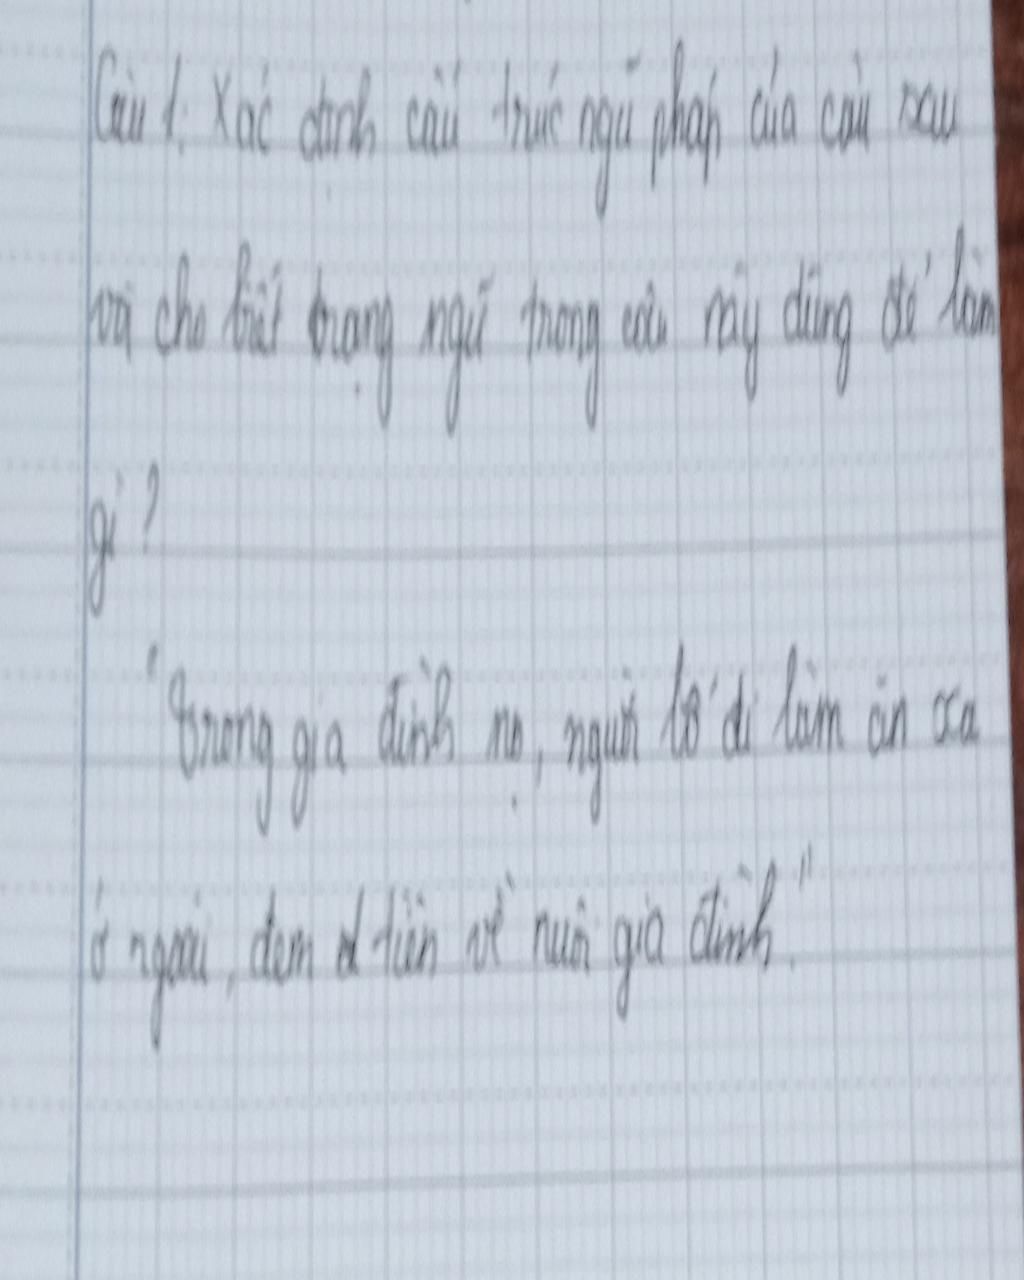 Câu 1: Xác định cấu trúc ngữ pháp của câu sau
và cho biết trạng ngữ trong câu này dùng để làm
gì?
"Trong gia đình nọ, người bố đi làm ăn xa
ở ngoài, đem tiền về nuôi gia đình".